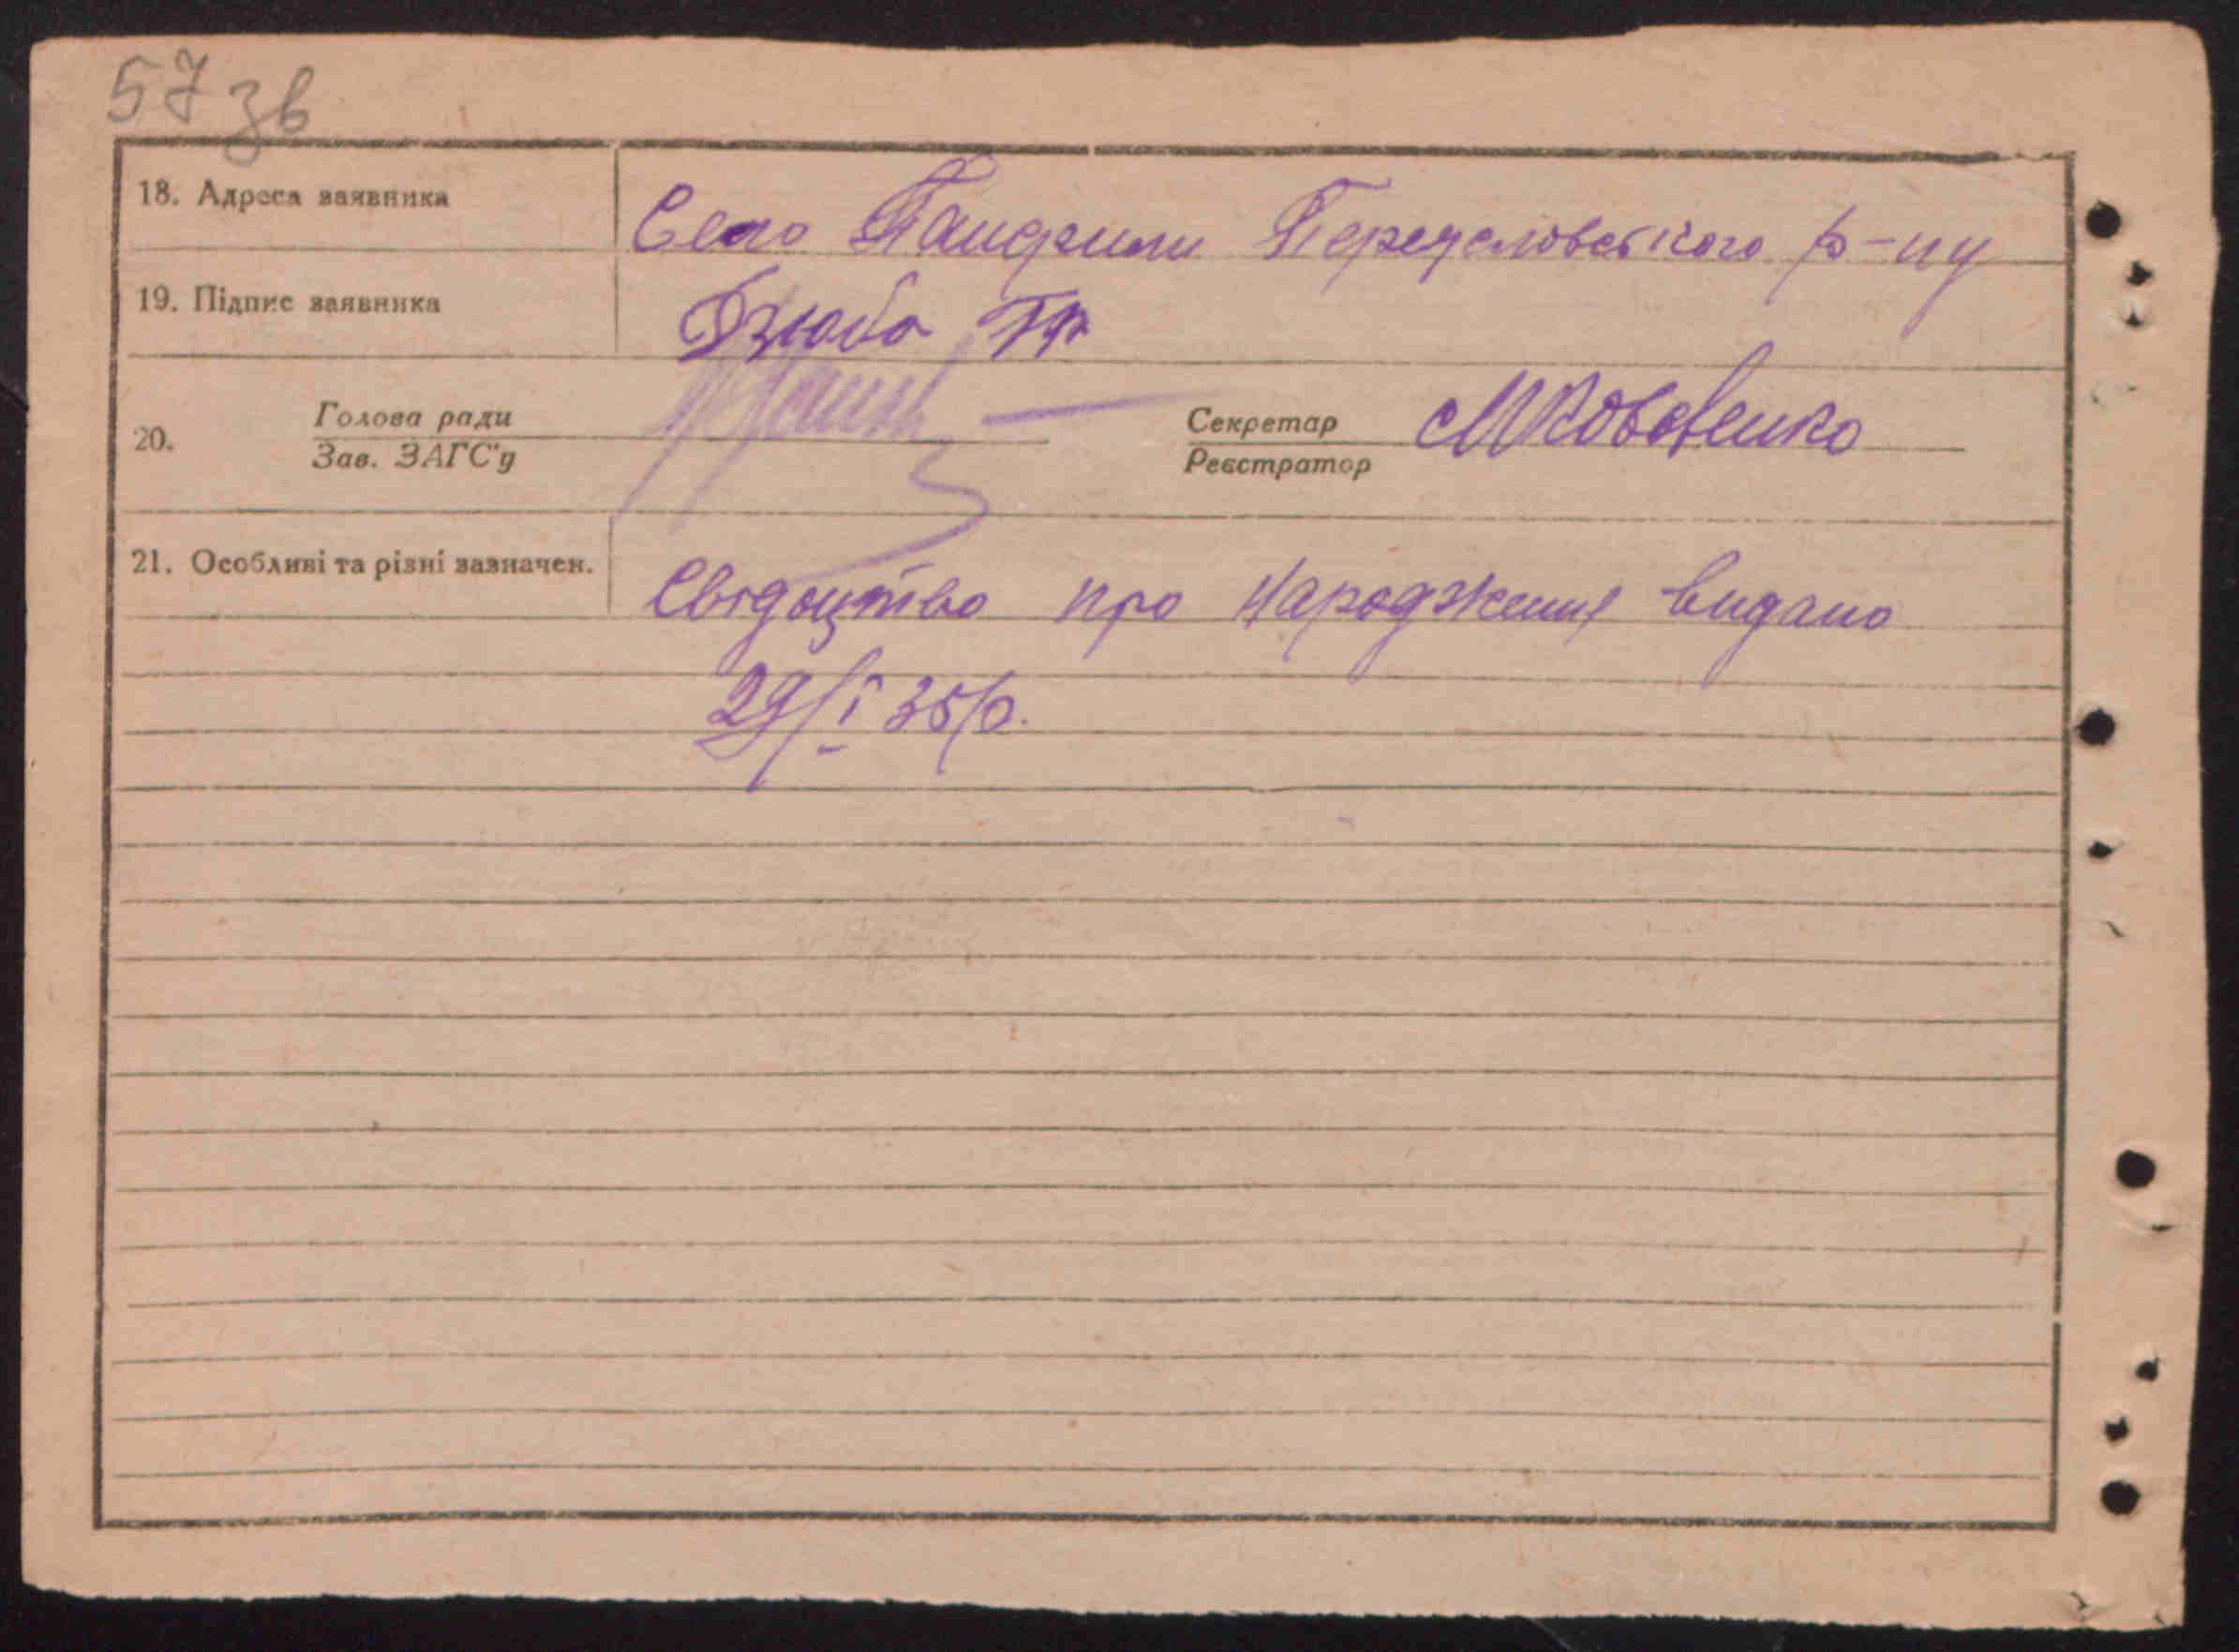 57 зв
18. Адреса заявника Село Панфили Переяславського р-ну
19. Підпис заявника Дзюба
20. Голова ради Секретар МКововенко
Зав. ЗАГС'у Реєстратор
21. Особливі та різні зазначен. Свідоцтво про народження видано
29/I 35 р.